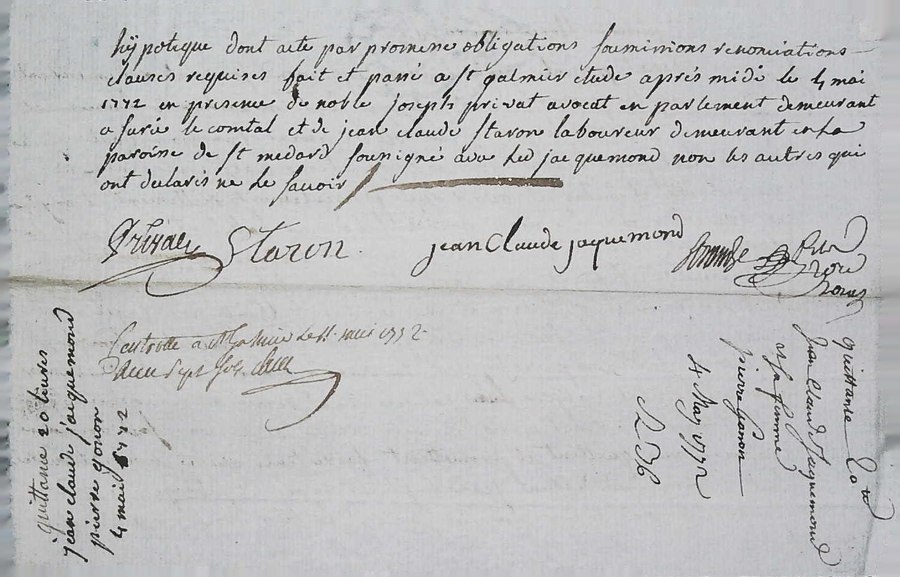 hÿpotique dont acte par promesse obligations soumissions renonciations
clauses requises fait et passé a st galmier etude aprés midi le 4 mai
1772 en presence de noble joseph privat avocat en parlement demeurant
a furé le comtal et de jean claude staron laboureur demeurant en la
paroisse de st medard sousigné avec led jacquemond non les autres qui
ont declarés ne le savoir
Privat Staron jean Claude jaquemond
mai 1772
quittance 20 livres
jean claude jacquemond
pierre gonon
4 mai 1772
quittance 20 tt
Jean Claude Jacquemond
et sa femme
pierre gonon
4 May 1772